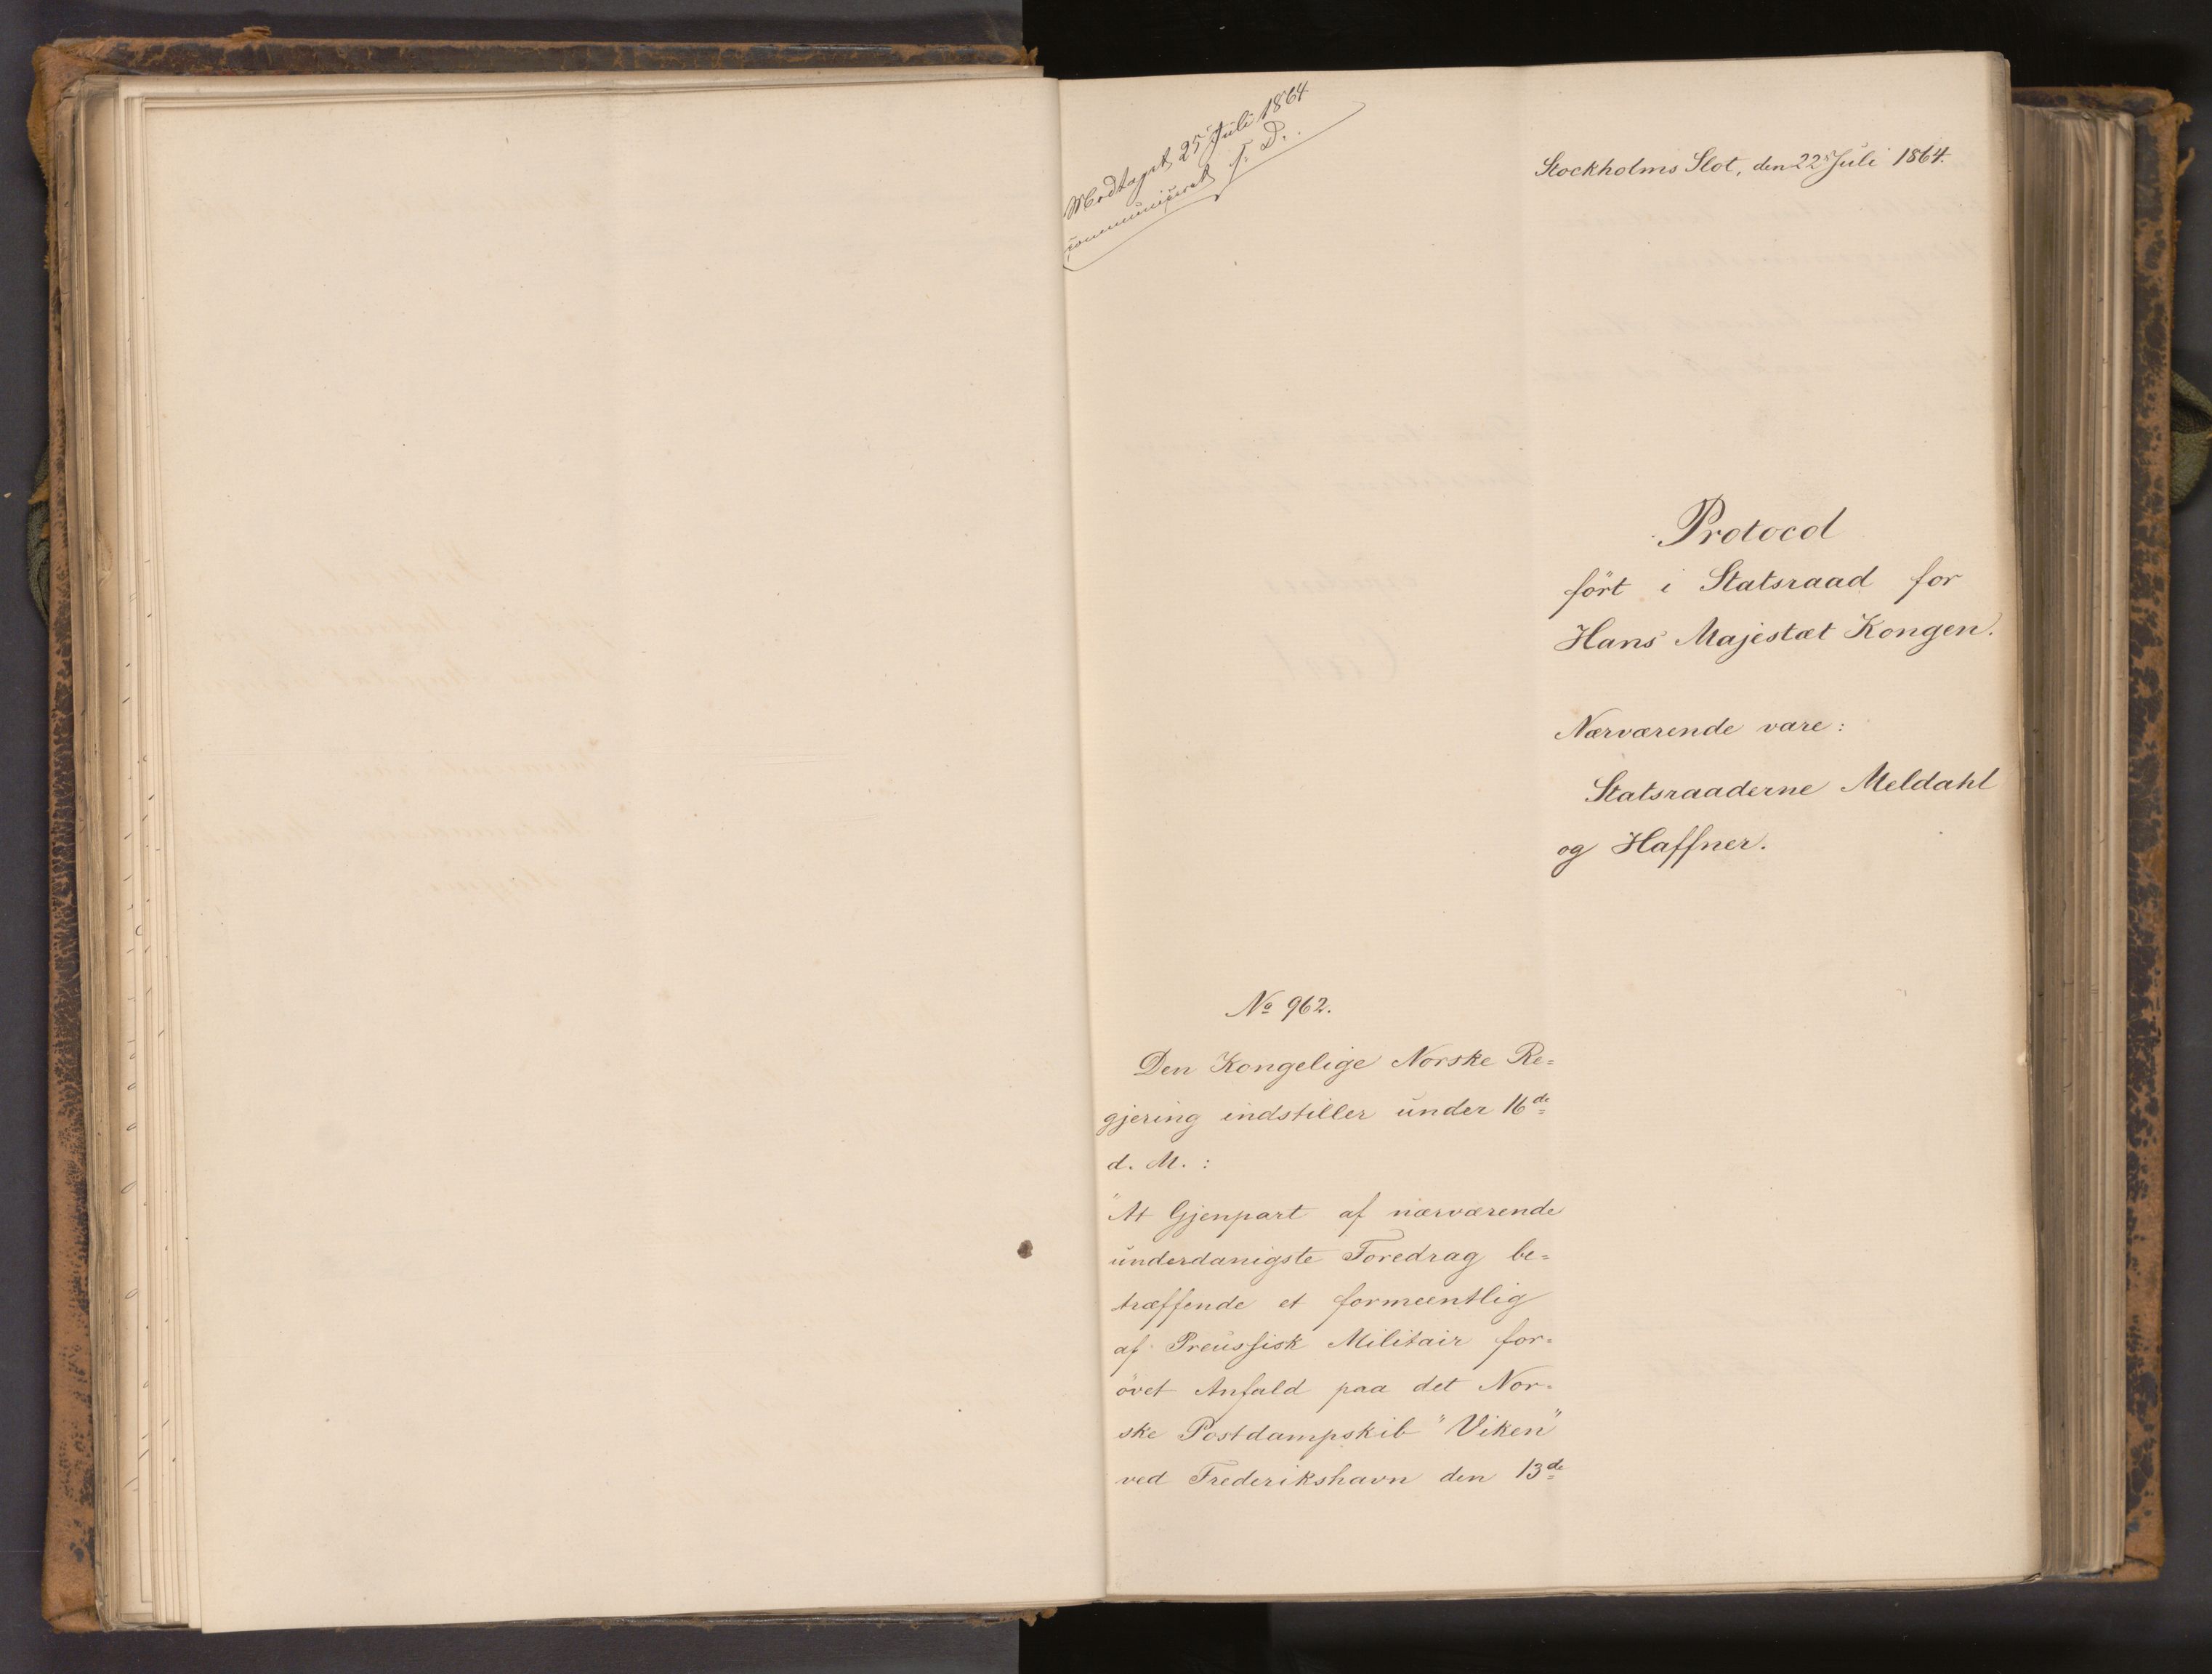 Modtaget 25 Juli 1864
communiceret J. D.
Stockholms Slot, den 22 Juli 1864.
Protocol
fört i Statsraad for
Hans Majestæt Kongen.
Nærværende vare:
Statsraaderne Meldahl
og Haffner.
No 962.
Den Kongelige Norske Re=
gjering indstiller under 16de
d. M. :
"At Gjenpart af nærværende
underdanigste Foredrag be=
træffende et formeentlig
af Preussisk Militair for=
övet Anfald paa det Nor=
ske Postdampskib "Viken"
ved Frederikshavn den 13de